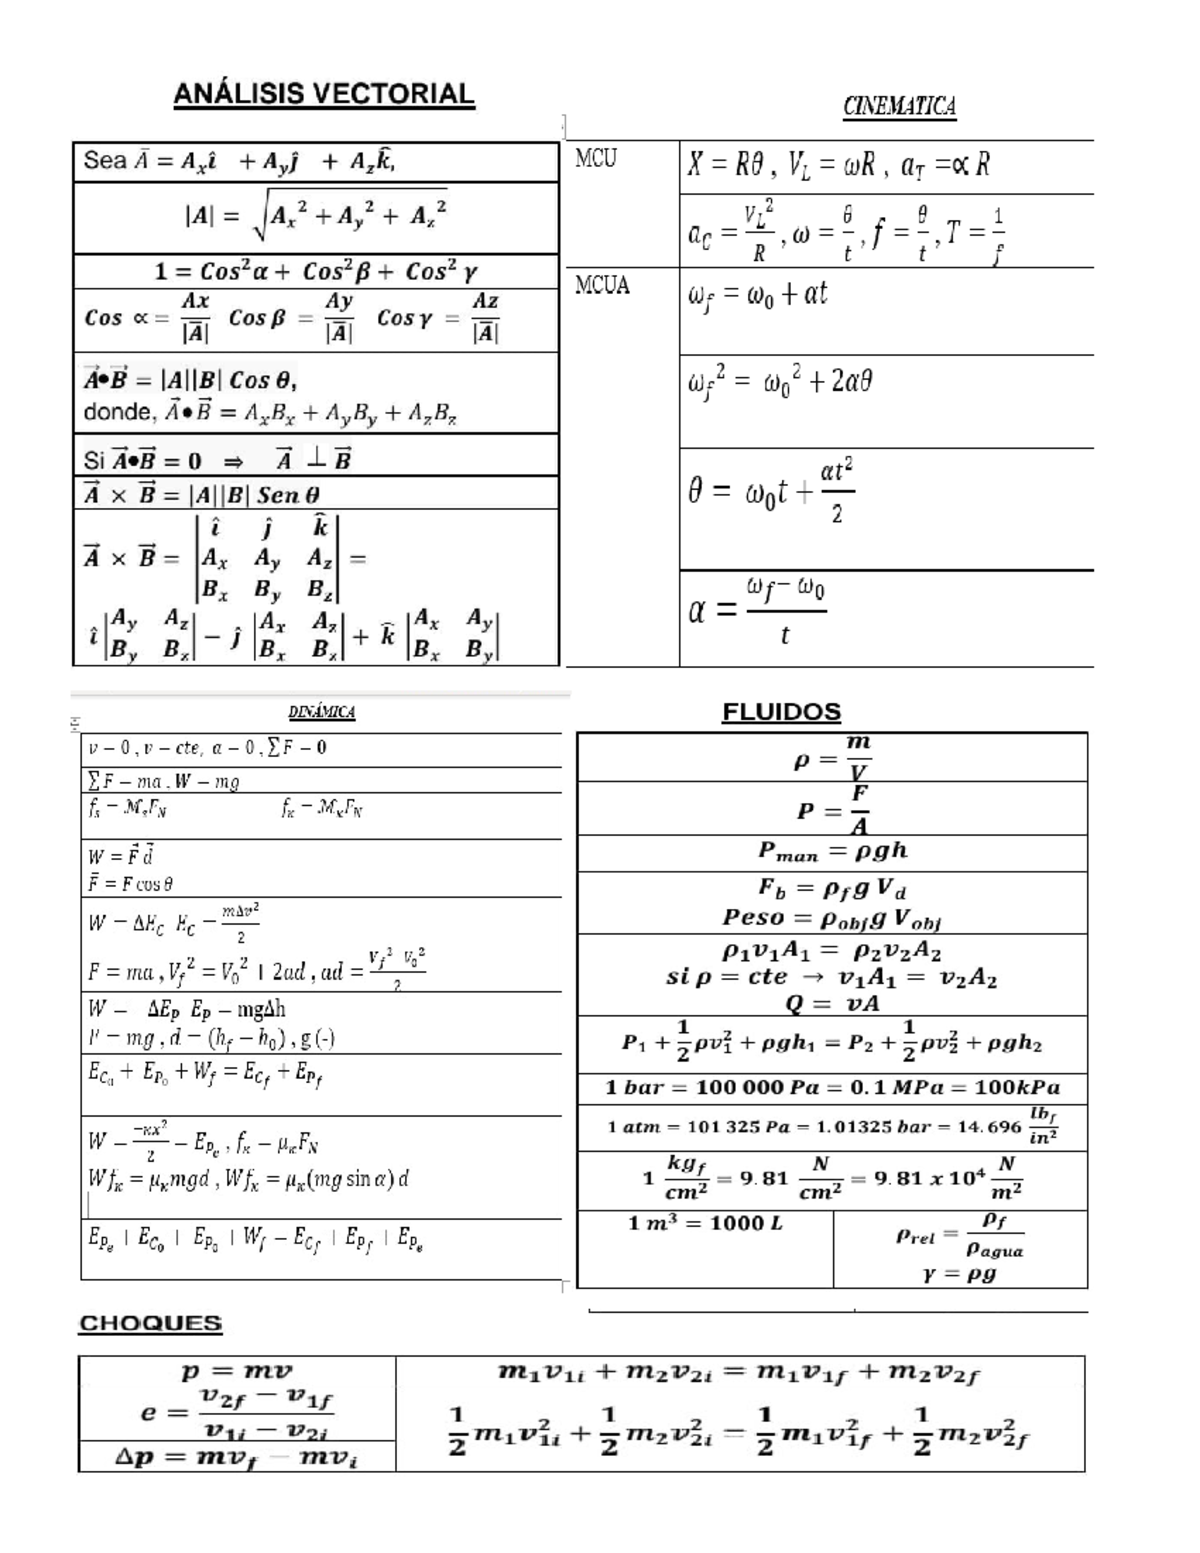 ANÁLISIS VECTORIAL
Sea Ā = Aₓî + A_yĵ + A_z k̂,
|A| = √(Aₓ² + A_y² + A_z²)
1 = Cos²α + Cos²β + Cos² γ
Cos ∝ = Ax/|Ā| Cos β = Ay/|Ā| Cos γ = Az/|Ā|
A⃗•B⃗ = |A||B| Cos θ,
donde, A⃗•B⃗ = AₓBₓ + A_yB_y + A_zB_z
Si A⃗•B⃗ = 0 ⇒ A⃗ ⊥ B⃗
A⃗ × B⃗ = |A||B| Sen θ
A⃗ × B⃗ = |î ĵ k̂; Aₓ A_y A_z; Bₓ B_y B_z| =
î |A_y A_z; B_y B_z| − ĵ |Aₓ A_z; Bₓ B_z| + k̂ |Aₓ A_y; Bₓ B_y|
CINEMATICA
MCU
X = Rθ , V_L = ωR , a_T =∝ R
a_C = V_L²/R , ω = θ/t , f = θ/t , T = 1/f
MCUA
ω_f = ω₀ + αt
ω_f² = ω₀² + 2αθ
θ = ω₀t + αt²/2
α = (ω_f − ω₀)/t
DINÁMICA
v − 0 , v − cte, a − 0 , ∑F − 0
∑F − ma . W − mg
f_s − M_sF_N f_κ − M_κF_N
W = F⃗ d⃗
F̄ = F cos θ
W − ΔE_C E_C − mΔv²/2
F = ma , V_f² = V₀² | 2ad , ad = (V_f² V₀²)/2
W − ΔE_P E_P − mgΔh
F − mg , d − (h_f − h₀) , g (-)
E_C₀ + E_P₀ + W_f = E_C_f + E_P_f
W − −κx²/2 − E_P_e , f_κ − μ_κF_N
Wf_κ = μ_κmgd , Wf_κ = μ_κ(mg sin α) d
E_P_e | E_C₀ | E_P₀ | W_f − E_C_f | E_P_f | E_P_e
FLUIDOS
ρ = m/V
P = F/A
P_man = ρgh
F_b = ρ_f g V_d
Peso = ρ_obj g V_obj
ρ₁v₁A₁ = ρ₂v₂A₂
si ρ = cte → v₁A₁ = v₂A₂
Q = vA
P₁ + 1/2 ρv₁² + ρgh₁ = P₂ + 1/2 ρv₂² + ρgh₂
1 bar = 100 000 Pa = 0.1 MPa = 100kPa
1 atm = 101 325 Pa = 1.01325 bar = 14.696 lb_f/in²
1 kg_f/cm² = 9.81 N/cm² = 9.81 x 10⁴ N/m²
1 m³ = 1000 L
ρ_rel = ρ_f/ρ_agua
γ = ρg
CHOQUES
p = mv
e = (v₂f − v₁f)/(v₁i − v₂i)
Δp = mv_f − mv_i
m₁v₁i + m₂v₂i = m₁v₁f + m₂v₂f
1/2 m₁v₁i² + 1/2 m₂v₂i² = 1/2 m₁v₁f² + 1/2 m₂v₂f²